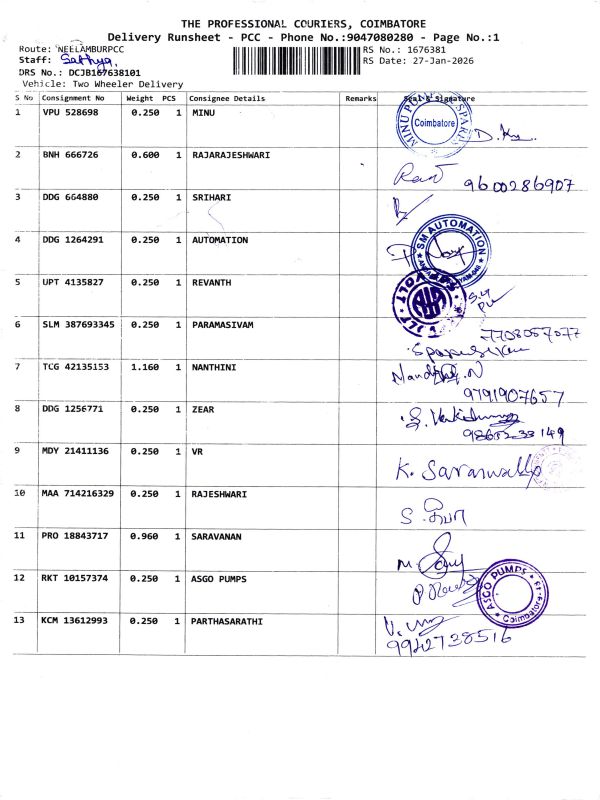 THE PROFESSIONAL COURIERS, COIMBATORE
Delivery Runsheet - PCC - Phone No.:9047080280 - Page No.:1
Route: NEELAMBURPCC
RS No.: 1676381
Staff: Sathya
RS Date: 27-Jan-2026
DRS No.: DCJB167638101
Vehicle: Two Wheeler Delivery
S No Consignment No Weight PCS Consignee Details Remarks Seal & Signature
1 VPU 528698 0.250 1 MINU
Coimbatore
2 BNH 666726 0.600 1 RAJARAJESHWARI
9600286907
3 DDG 664880 0.250 1 SRIHARI
4 DDG 1264291 0.250 1 AUTOMATION
SM AUTOMATION
5 UPT 4135827 0.250 1 REVANTH
6 SLM 387693345 0.250 1 PARAMASIVAM
7708057077
7 TCG 42135153 1.160 1 NANTHINI
9791907657
8 DDG 1256771 0.250 1 ZEAR
9 MDY 21411136 0.250 1 VR
10 MAA 714216329 0.250 1 RAJESHWARI
11 PRO 18843717 0.960 1 SARAVANAN
12 RKT 10157374 0.250 1 ASGO PUMPS
ASGO PUMPS
13 KCM 13612993 0.250 1 PARTHASARATHI
9942738516